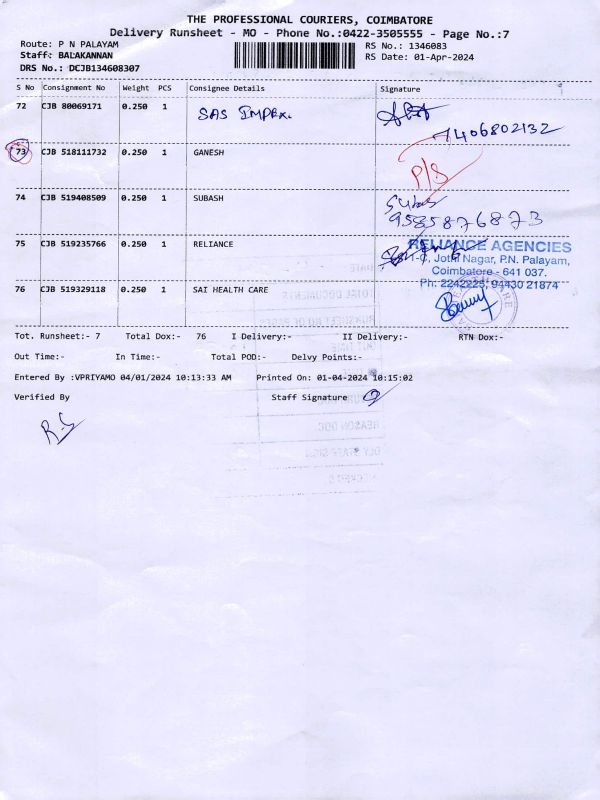 THE PROFESSIONAL COURIERS, COIMBATORE
Delivery Runsheet - MO - Phone No.:0422-3505555 - Page No.:7
Route: P N PALAYAM RS No.: 1346083
Staff: BALAKANNAN RS Date: 01-Apr-2024
DRS No.: DCJB134608307
S No Consignment No Weight PCS Consignee Details Signature
72 CJB 80069171 0.250 1 SAS IMPEX.
7406802132
73 CJB 518111732 0.250 1 GANESH
P/S
74 CJB 519408509 0.250 1 SUBASH
9585876873
75 CJB 519235766 0.250 1 RELIANCE RELIANCE AGENCIES
1-C, Jothi Nagar, P.N. Palayam,
Coimbatore - 641 037.
Ph: 2242225, 94430 21874
76 CJB 519329118 0.250 1 SAI HEALTH CARE
Tot. Runsheet:- 7 Total Dox:- 76 I Delivery:- II Delivery:- RTN Dox:-
Out Time:- In Time:- Total POD:- Delvy Points:-
Entered By :VPRIYAMO 04/01/2024 10:13:33 AM Printed On: 01-04-2024 10:15:02
Verified By Staff Signature
R-S